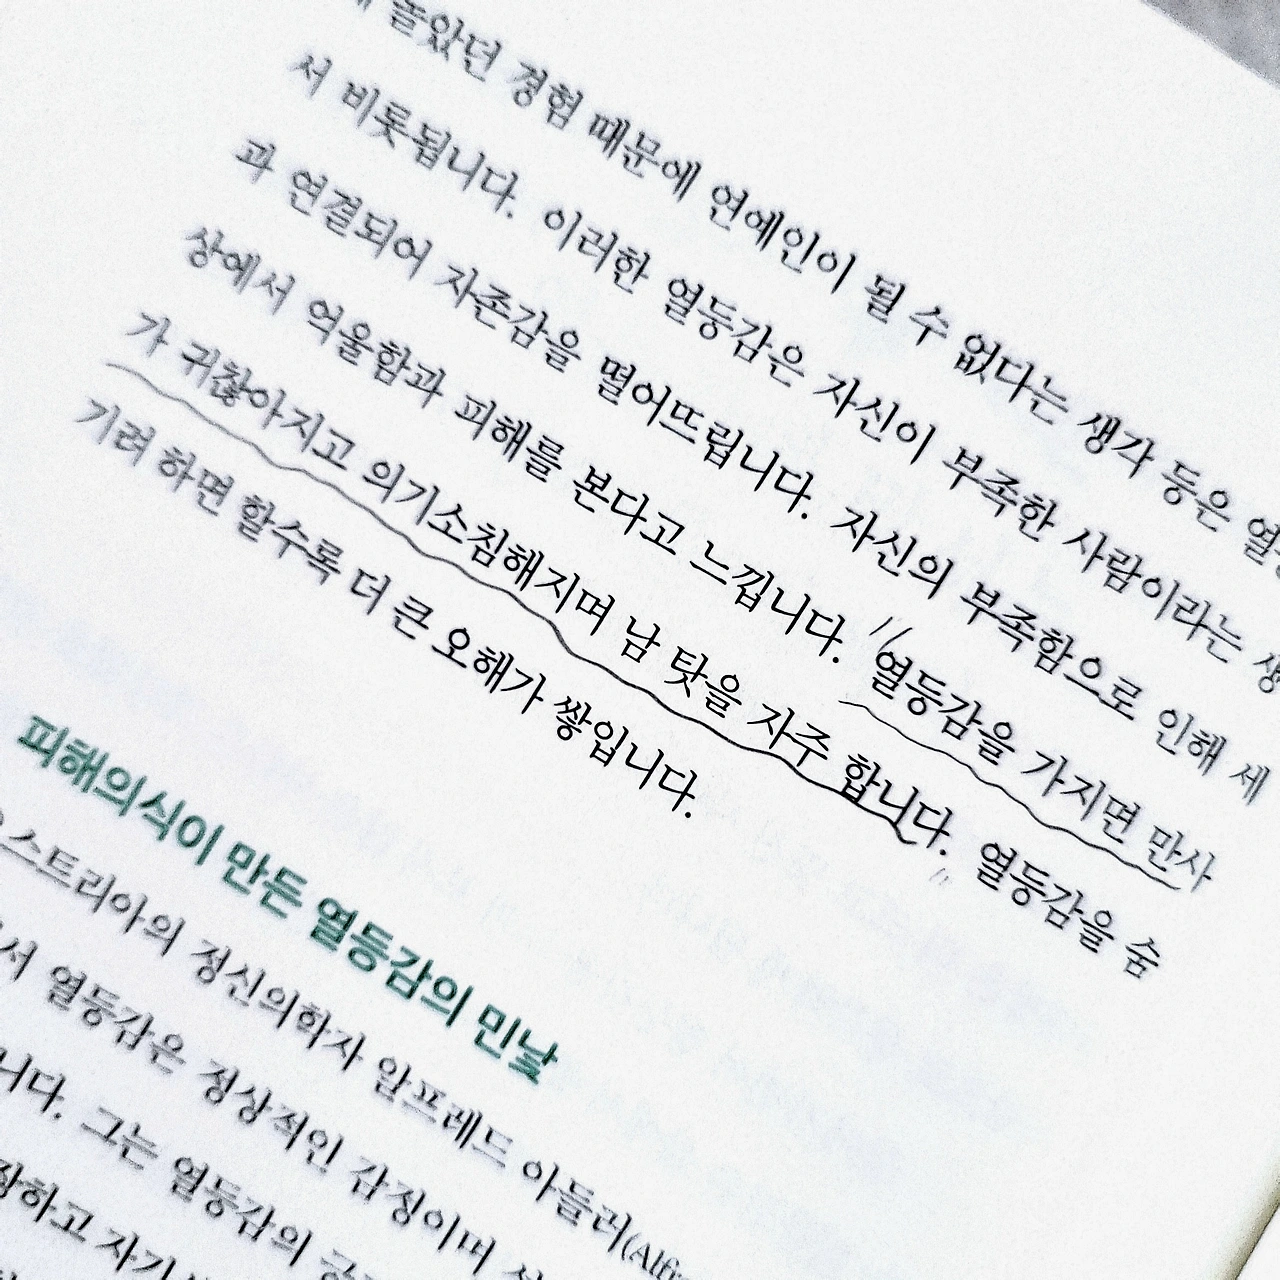 놀았던 경험 때문에 연예인이 될 수 없다는 생각 등은
서 비롯됩니다. 이러한 열등감은 자신이 부족한 사람이라는
과 연결되어 자존감을 떨어뜨립니다. 자신의 부족함으로 인해 세
상에서 억울함과 피해를 본다고 느낍니다. 열등감을 가지면 만사
가 귀찮아지고 의기소침해지며 남 탓을 자주 합니다. 열등감을 숨
기려 하면 할수록 더 큰 오해가 쌓입니다.
피해의식이 만든 열등감의 민낯
스트리아의 정신의학자 알프레드 아들러(Alfr
서 열등감은 정상적인 감정이며
니다. 그는 열등감의
장하고 자기